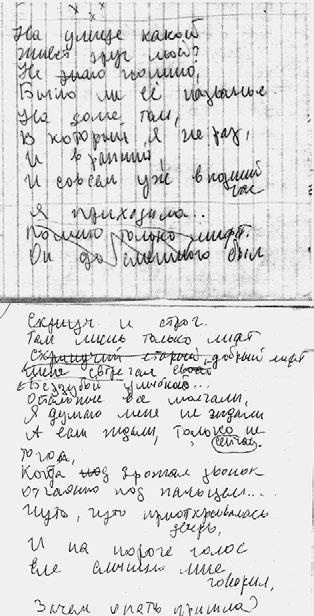 На улице какой
Живёт друг мой?
Не знаю помню,
Было ли её названье.
На доме там,
В который я не раз,
И в ранний,
И совсем уже в поздний
час
Я приходила..
Помню только лифт.
Он до смешного был
Скрипуч. и строг.
Там лишь только лифт
Скрипучий старый, добрый лифт
Меня встречал своей
Беззубой улыбкою...
Остальные все молчали,
Я думаю меня не ждали
А если ждали, только не
сейчас.
тогда,
Когда под дрожал звонок
отчаянно под пальцем....
Чуть, чуть приоткрывалась
дверь,
И на пороге голос
мне,
говорил,
Зачем опять пришла?